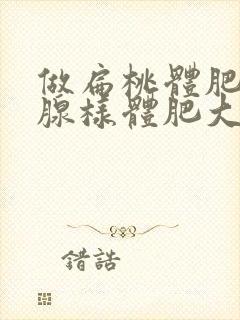 做扁桃體肥
腺樣體肥大
錯誥